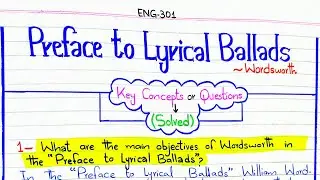 ENG-301
Preface to Lyrical Ballads
~ Wordsworth
Key Concepts or Questions
(Solved)
1- What are the main objectives of Wordsworth in
the "Preface to Lyrical Ballads"?
In the "Preface to Lyrical Ballads" William Word-